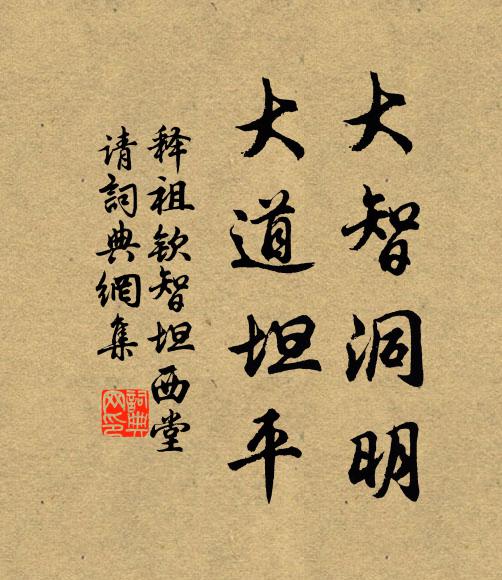 大智洞明
大道坦平
释祖钦智坦西堂
请詞典網集
詞典
网印